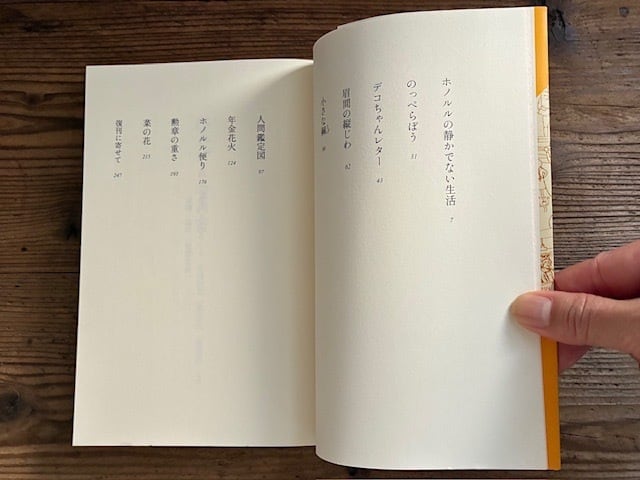 ホノルルの静かでない生活 7
のっぺらぼう 31
デコちゃんレター 45
眉間の縦じわ 62
人間鑑定図 97
年金花火 124
ホノルル便り 170
勲章の重さ 193
菜の花 215
復刊に寄せて 247